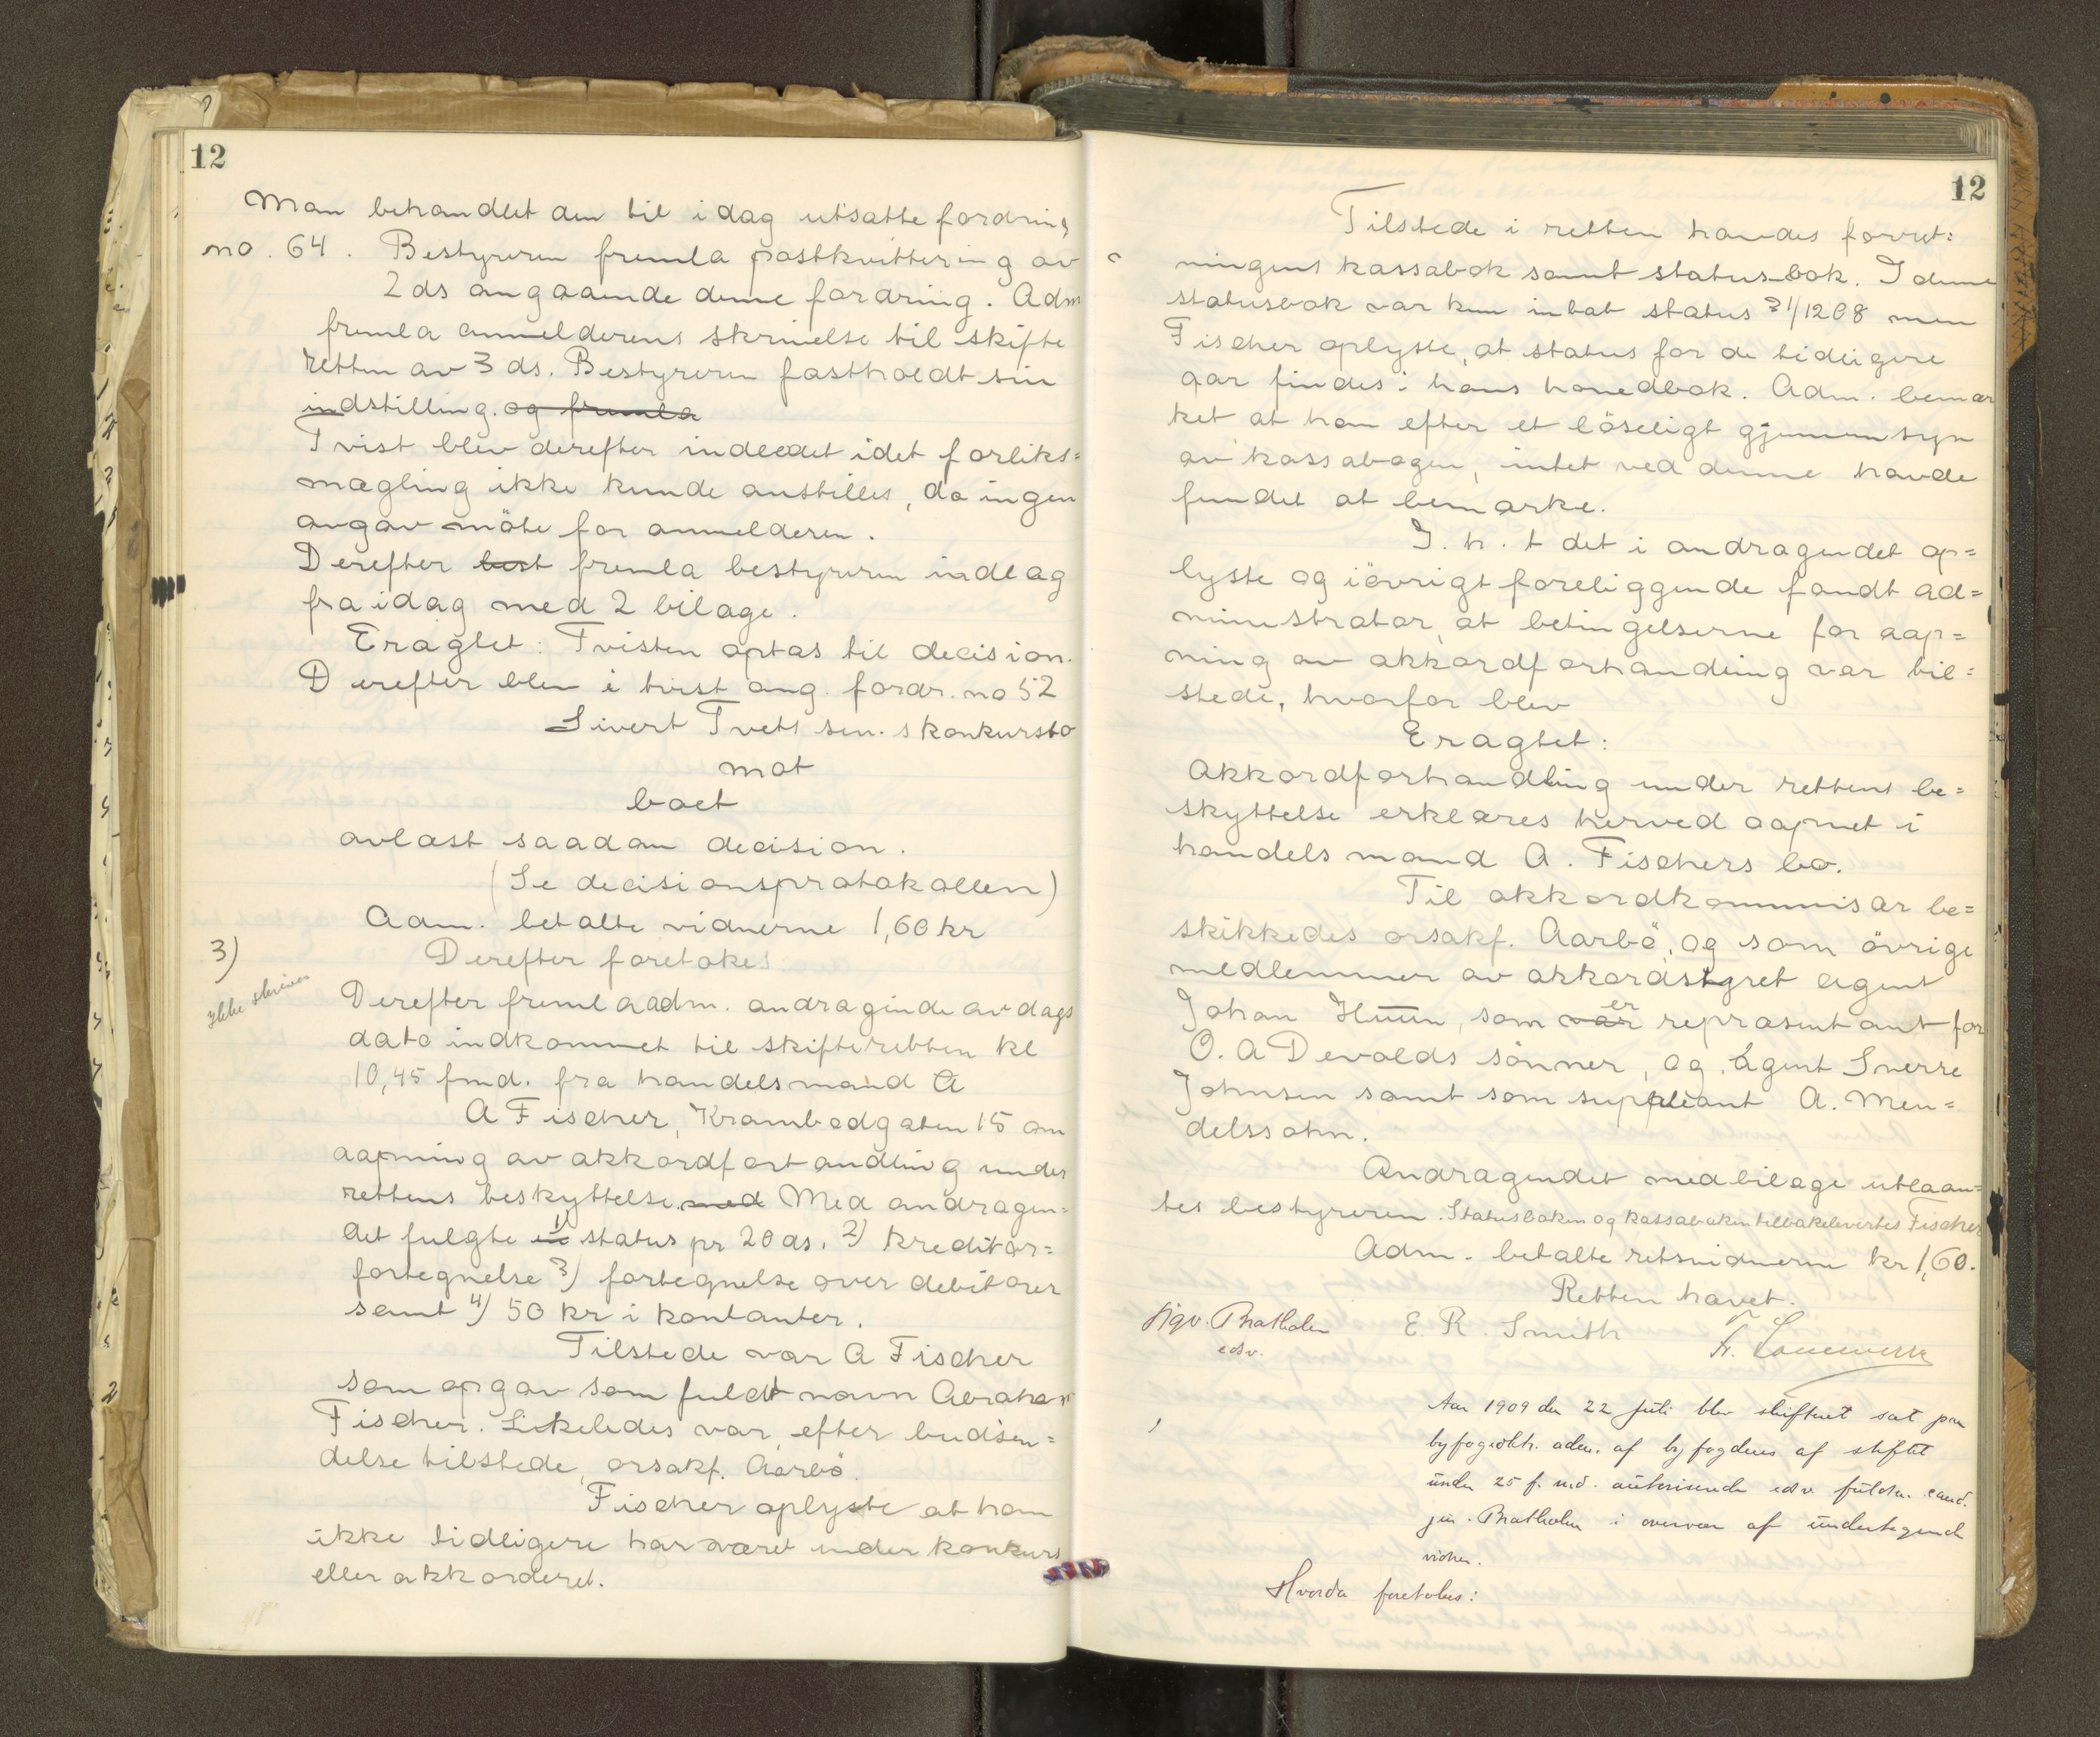 12
Man behandlet den til idag utsatte fordring
no. 64. Bestyreren fremla postkvittering av
2 ds angaaende denne fordring. Adm
fremla anmelderens skrivelse til skifte
retten av 3 ds. Bestyreren fastholdt sin
indstilling. og fremla
Tvist blev derefter indledet idet forliks=
mægling ikke kunde anstilles, da ingen
avgav möte for anmelderen.
Derefter best fremla bestyreren indlag
fra idag med 2 bilage.
Eragtet: Tvisten optas til decision.
Derefter blev i tvist ang. fordr. no 52
Sivert Tvets sen.s konkursbo
mot
boet
avlæst saadan decision.
(Se decisionsprotokollen)
Adm. betalte vidnerne 1,60 kr
3)
Derefter foretokes
Ikke skrives
Derefter fremla adm. andragende av dags
dato indkommet til skifteretten kl
10,45 fmd. fra handelsmand A
A Fischer, Krambodgaten 15 om
aapning av akkordforhandling under
rettens beskyttelse med Med andragen=
det fulgte en 1) status pr 20 ds. 2) kreditor=
fortegnelse 3) fortegnelse over debitorer
samt 4) 50 kr i kontanter.
Tilstede var A Fischer
som opgav som fuldt navn Abraham
Fischer. Likeledes var efter budsen=
delse tilstede, orsakf. Aarbö.
Fischer oplyste at han
ikke tidligere har været under konkurs
eller akkorderet.
12
Tilstede i retten havdes forret=
ningens kassabok samt status-bok. I denne
statusbok var kun intat status 31/12 08 men
Fischer oplyste, at status for de tidligere
aar findes i hans hovedbok. Adm. bemær
ket at han efter et löseligt gjennemsyn
av kassabogen, intet ved denne havde
fundet at bemærke.
I. h. t det i andragendet op=
lyste og iövrigt foreliggende fandt ad=
ministrator, at betingelserne for aap=
ning av akkordforhandling var til=
stede, hvorfor blev
Eragtet:
Akkordforhandling under rettens be=
skyttelse erklæres herved aapnet i
handelsmand A. Fischers bo.
Til akkordkommisær be=
skikkedes orsakf. Aarbö, og som övrige
medlemmer av akkordstyret agent
Johan Huun, som var er repræsentant for
O. A Devolds sönner, og agent Sverre
Johnsen samt som suppleant A. Men=
delssohn.
Andragendet med bilage utlaan=
tes bestyreren. Statusboken og kassaboken tilbakelevertes Fischer
Adm. betalte retsvidnerne kr 1,60.
Retten hævet.
Sigv. Bratholm E. R. Smith
edsv.
Aar 1909 den 22 juli blev skifteret sat paa
byfogedkt. adm. af byfogdens af stiftet
under 25 f. md. autoriserede edsv. fuldm. cand.
jur. Bratholm i overvær af undertegnede
vidner.
Hvorda foretokes: